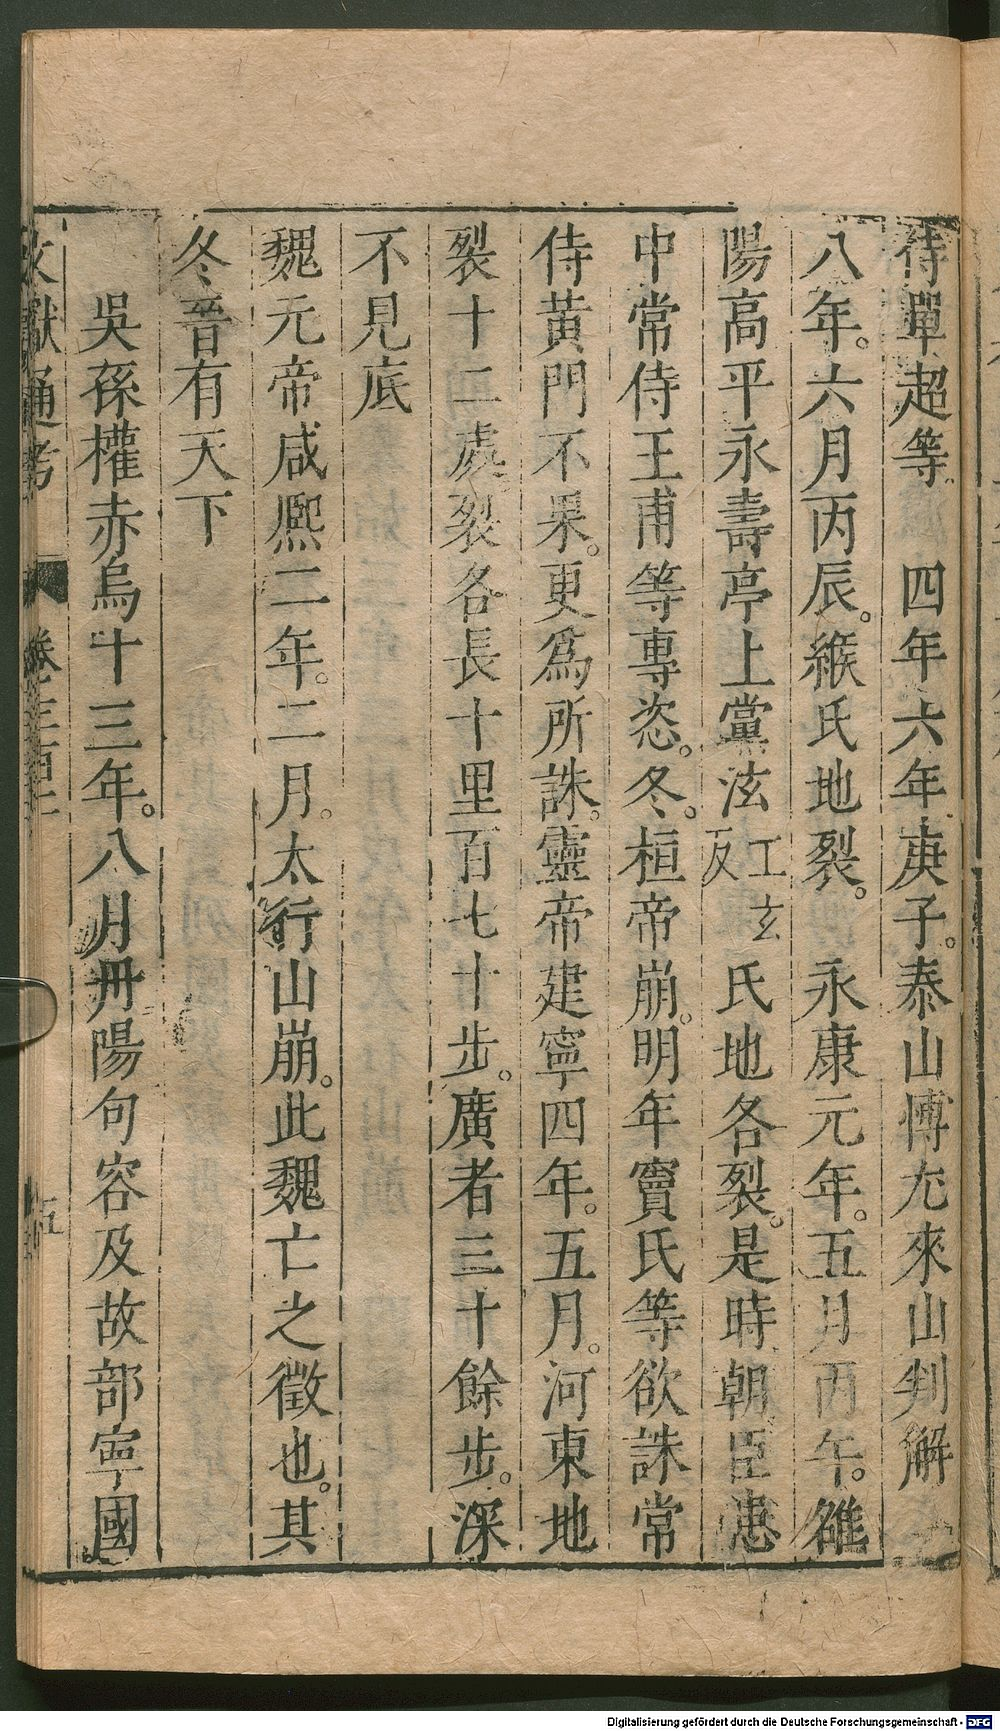 侍單超等 四年六年庚子泰山博尤來山判解
八年六月丙辰緱氏地裂 永康元年五月丙午雒
陽高平永壽亭上黨泫工玄反氏地各裂是時朝臣患
中常侍王甫等專恣冬桓帝崩明年竇氏等欲誅常
侍黃門不果更爲所誅靈帝建寧四年五月河東地
裂十二處裂各長十里百七十步廣者三十餘步深
不見底
魏元帝咸熙二年二月太行山崩此魏亡之徵也其
冬晉有天下
吳孫權赤烏十三年八月丹陽句容及故鄣寧國
文獻通考 卷三百二 五
Digitalisierung gefördert durch die Deutsche Forschungsgemeinschaft - DFG